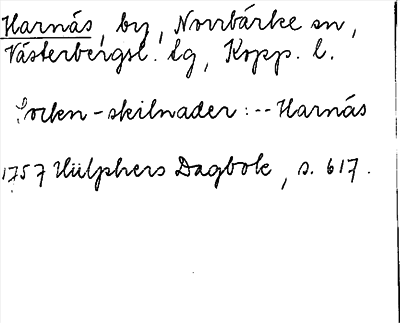 Harnäs, by, Norrbärke sn,
Västerbergsl. lg, Kopp. l.
Socken-skilnader: -- Harnäs
1757 Hülphers Dagbok, s. 617.